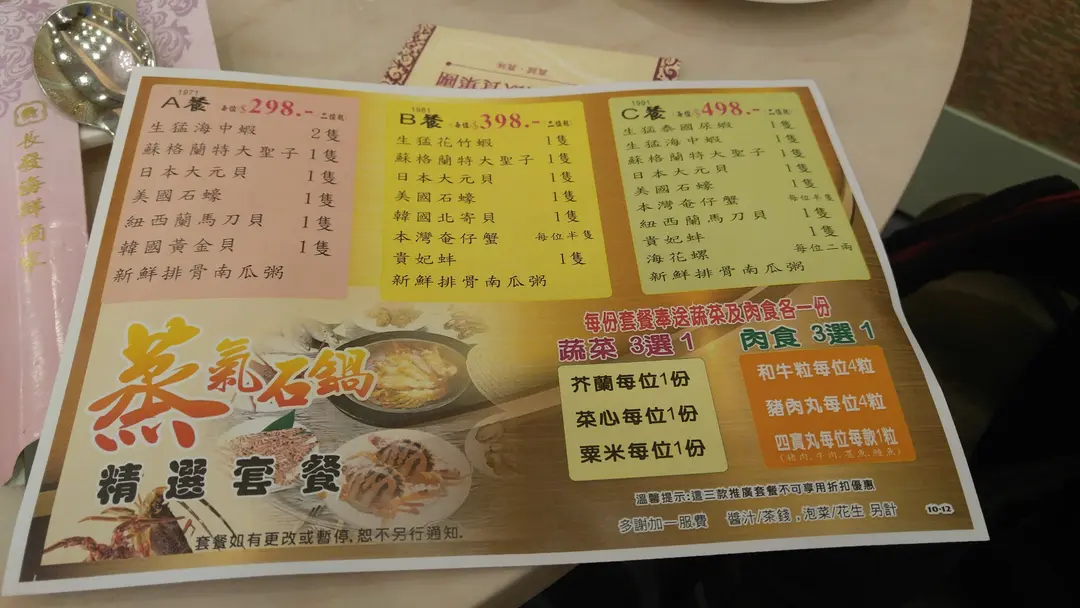 長發海鮮酒家
1971
A餐 每位($298.-二位起)
生猛海中蝦 2隻
蘇格蘭特大聖子 1隻
日本大元貝 1隻
美國石蠔 1隻
紐西蘭馬刀貝 1隻
韓國黃金貝 1隻
新鮮排骨南瓜粥
1981
B餐 (每位$398.-二位起)
生猛花竹蝦 1隻
蘇格蘭特大聖子 1隻
日本大元貝 1隻
美國石蠔 1隻
韓國北寄貝 1隻
本灣奄仔蟹 每位半隻
貴妃蚌 1隻
新鮮排骨南瓜粥
1991
C餐 (每位$498.-二位起)
生猛泰國尿蝦 1隻
生猛海中蝦 1隻
蘇格蘭特大聖子 1隻
日本大元貝 1隻
美國石蠔 1隻
本灣奄仔蟹 每位半隻
紐西蘭馬刀貝 1隻
貴妃蚌 1隻
海花螺 每位二兩
新鮮排骨南瓜粥
蒸氣石鍋
精選套餐
每份套餐奉送蔬菜及肉食各一份
蔬菜 3選 1
芥蘭每位1份
菜心每位1份
粟米每位1份
肉食 3選 1
和牛粒每位4粒
豬肉丸每位4粒
四寶丸每位每款1粒
(豬肉,牛肉,墨魚,鯪魚)
溫馨提示:這三款推廣套餐不可享用折扣優惠
多謝加一服費 醬汁/茶錢,泡菜/花生 另計
10-12
套餐如有更改或暫停,恕不另行通知.